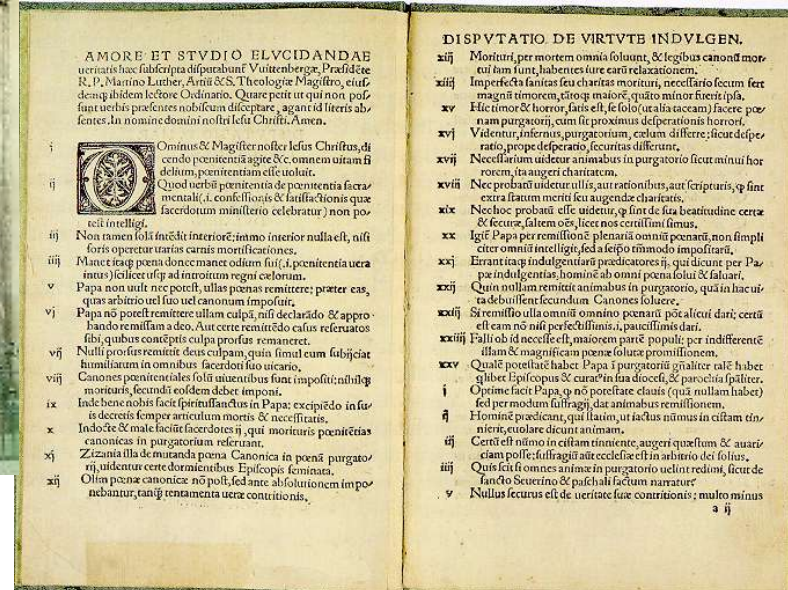 AMORE ET STVDIO ELVCIDANDAE
ueritatis hæc subscripta disputabunť Vuittenbergæ, Præsidēte
R. P. Martino Luther, Artiū & S. Theologiæ Magistro, eius-
demq; ibidem lectore Ordinario. Quare petit ut qui non pos-
sunt uerbis præsentes nobiscum disceptare, agant id literis ab-
sentes. In nomine domini nostri Iesu Christi. Amen.
i Ominus & Magister noster Iesus Christus, di
cendo pœnitentiā agite &c. omnem uitam fi
delium, pœnitentiam esse uoluit.
ij Quod uerbū pœnitentia de pœnitentia sacra-
mentali (.i. confessionis & satisfactionis quæ
sacerdotum ministerio celebratur) non po-
test intelligi.
iij Non tamen solā intēdit interiorē: immo interior nulla est, nisi
foris operetur uarias carnis mortificationes.
iiij Manet itaq; pœna donec manet odium sui (.i. pœnitentia uera
intus) scilicet usq; ad introitum regni cælorum.
v Papa non uult nec potest, ullas pœnas remittere: præter eas,
quas arbitrio uel suo uel canonum imposuit.
vj Papa nō potest remittere ullam culpā, nisi declarādo & appro-
bando remissam a deo. Aut certe remittēdo casus reseruatos
sibi, quibus contēptis culpa prorsus remaneret.
vij Nulli prorsus remittit deus culpam, quin simul eum subijciat
humiliatum in omnibus sacerdoti suo uicario.
viij Canones pœnitentiales solū uiuentibus sunt impositi: nihilq;
morituris, secundū eosdem debet imponi.
ix Inde bene nobis facit spiritussanctus in Papa: excipiēdo in su-
is decretis semper articulum mortis & necessitatis.
x Indocte & male faciūt sacerdotes ij, qui morituris pœnitētias
canonicas in purgatorium reseruant.
xj Zizania illa de mutanda pœna Canonica in pœnā purgato-
rij, uidentur certe dormientibus Episcopis seminata.
xij Olim pœnæ canonicæ nō post, sed ante absolutionem impo-
nebantur, tanq̄ tentamenta ueræ contritionis.
DISPVTATIO DE VIRTVTE INDVLGEN.
xiij Morituri, per mortem omnia soluunt, & legibus canonū mor-
tui iam sunt, habentes iure earū relaxationem.
xiiij Imperfecta sanitas seu charitas morituri, necessario secum fert
magnū timorem, tātoq; maiorē, quāto minor fuerit ipsa.
xv Hic timor & horror, satis est, se solo (ut alia taceam) facere pœ-
nam purgatorij, cum sit proximus desperationis horrori.
xvj Videntur, infernus, purgatorium, cælum differre: sicut despe-
ratio, prope desperatio, securitas differunt.
xvij Necessarium uidetur animabus in purgatorio sicut minui hor
rorem, ita augeri charitatem.
xviij Nec probatū uidetur ullis, aut rationibus, aut scripturis, q̄ sint
extra statum meriti seu augendæ charitatis.
xix Nec hoc probatū esse uidetur, q̄ sint de sua beatitudine certæ
& securæ, saltem oēs, licet nos certissimi simus.
xx Igit̃ Papa per remissionē plenariā omniū pœnarū, non simpli
citer omniū intelligit, sed a seipō tm̄modo impositarū.
xxj Errant itaq; indulgentiarū prædicatores ij, qui dicunt per Pa-
pæ indulgentias, hominē ab omni pœna solui & saluari.
xxij Quin nullam remittit animabus in purgatorio, quā in hac ui-
ta debuissent secundum Canones soluere.
xxiij Si remissio ulla omniū omnino pœnarū pōt alicui dari; certū
est eam nō nisi perfectissimis .i. paucissimis dari.
xxiiij Falli ob id necesse est, maiorem partē populi: per indifferentē
illam & magnificam pœnæ solutæ promissionem.
xxv Qualē potestatē habet Papa ī purgatoriū gn̄aliter talē habet
q̄libet Episcopus & curat⁹ in sua diocesi, & parochia spāliter.
j Optime facit Papa, q̄ nō potestate clauis (quā nullam habet)
sed per modum suffragij, dat animabus remissionem.
ij Hominē prædicant, qui statim, ut iactus nūmus in cistam tin-
nierit, euolare dicunt animam.
iij Certū est nūmo in cistam tinniente, augeri quæstum & auari-
ciam posse: suffragiū aūt ecclesiæ est in arbitrio dei solius.
iiij Quis scit si omnes animæ in purgatorio uelint redimi, sicut de
sancto Seuerino & paschali factum narratur?
v Nullus securus est de ueritate suæ contritionis; multo minus
a ij